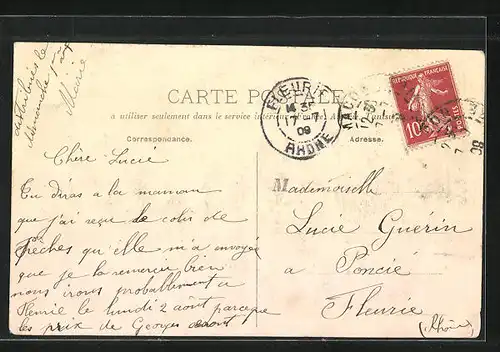 distribués le
dimanche 1er août
Mairie
CARTE POSTALE
a utiliser seulement dans le service intérieur (France, Algérie, Tunisie)
Correspondance.
Adresse.
FLEURIE
7
09
RHÔNE
MACON
REPUBLIQUE FRANÇAISE
10
Chère Lucie
Tu diras a la maman
que j'ai reçu le colis de
Pêches qu'elle m'a envoyé
que je la remercie bien
nous irons probablement a
Fleurie le lundi 2 août parceque
les prix de Georges
Mademoiselle
Lucie Guérin
a Poncié
Fleurie
(Rhône)